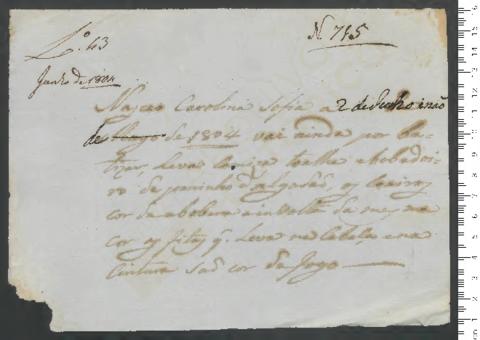 Nº 745
L.º 43
Junho de 1804
Nasceo Carolina Sofia a 2 de Junho e não
de de 1804 vai ainda por ba-
tizar, leva camiza toalha e
de paninho d'algodão,
cor de a volta da mesma
cor as fitas q. leva na cabeça, e na
cintura são cor de fogo